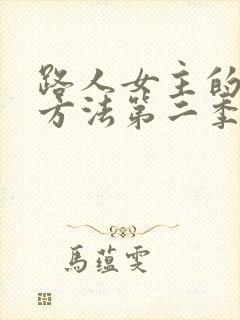 路人女主的
方法第二季
馬蕴雯